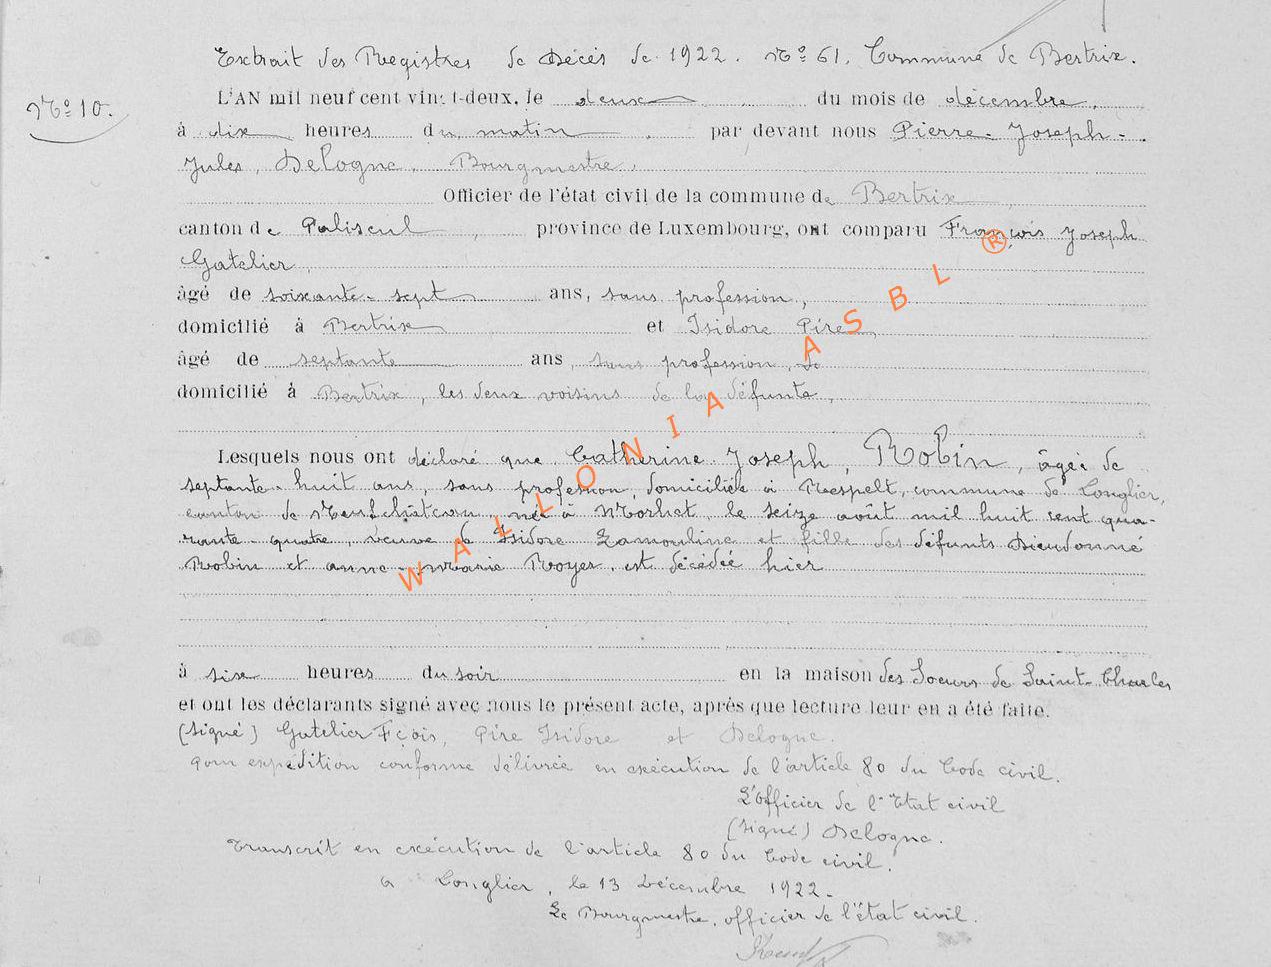 Extrait des Registres de Décès de 1922. No 61. Commune de Bertrix.
No 10.
L'AN mil neuf cent vingt-deux, le deux du mois de décembre,
à dix heures du matin par devant nous Pierre-Joseph-
Jules, Delogne, Bourgmestre,
Officier de l'état civil de la commune de Bertrix,
canton de Paliseul, province de Luxembourg, ont comparu François Joseph
Gatelier,
âgé de soixante-sept ans, sans profession,
domicilié à Bertrix et Isidore Pire,
âgé de septante ans, sans profession,
domicilié à Bertrix, les deux voisins de la défunte,
Lesquels nous ont déclaré que Catherine Joseph, Robin, âgée de
septante-huit ans, sans profession, domiciliée à Respelt, commune de Longlier,
canton de Neufchâteau, née à Morhet, le seize août mil huit cent qua-
rante-quatre, veuve d Isidore Lamouline et fille des défunts Dieudonné
Robin et anne-marie Royer, est décédée hier
à six heures du soir en la maison des Soeurs de Saint-Charles
et ont les déclarants signé avec nous le présent acte, après que lecture leur en a été faite.
(Signé) Gatelier Fçois, Pire Isidore et Delogne.
Pour expédition conforme délivrée en exécution de l'article 80 du Code civil.
L'Officier de l'Etat civil
(Signé) Delogne.
Transcrit en exécution de l'article 80 du Code civil.
a Longlier, le 13 Décembre 1922.
Le Bourgmestre, officier de l'état civil.
WALLONIA ASBL ®